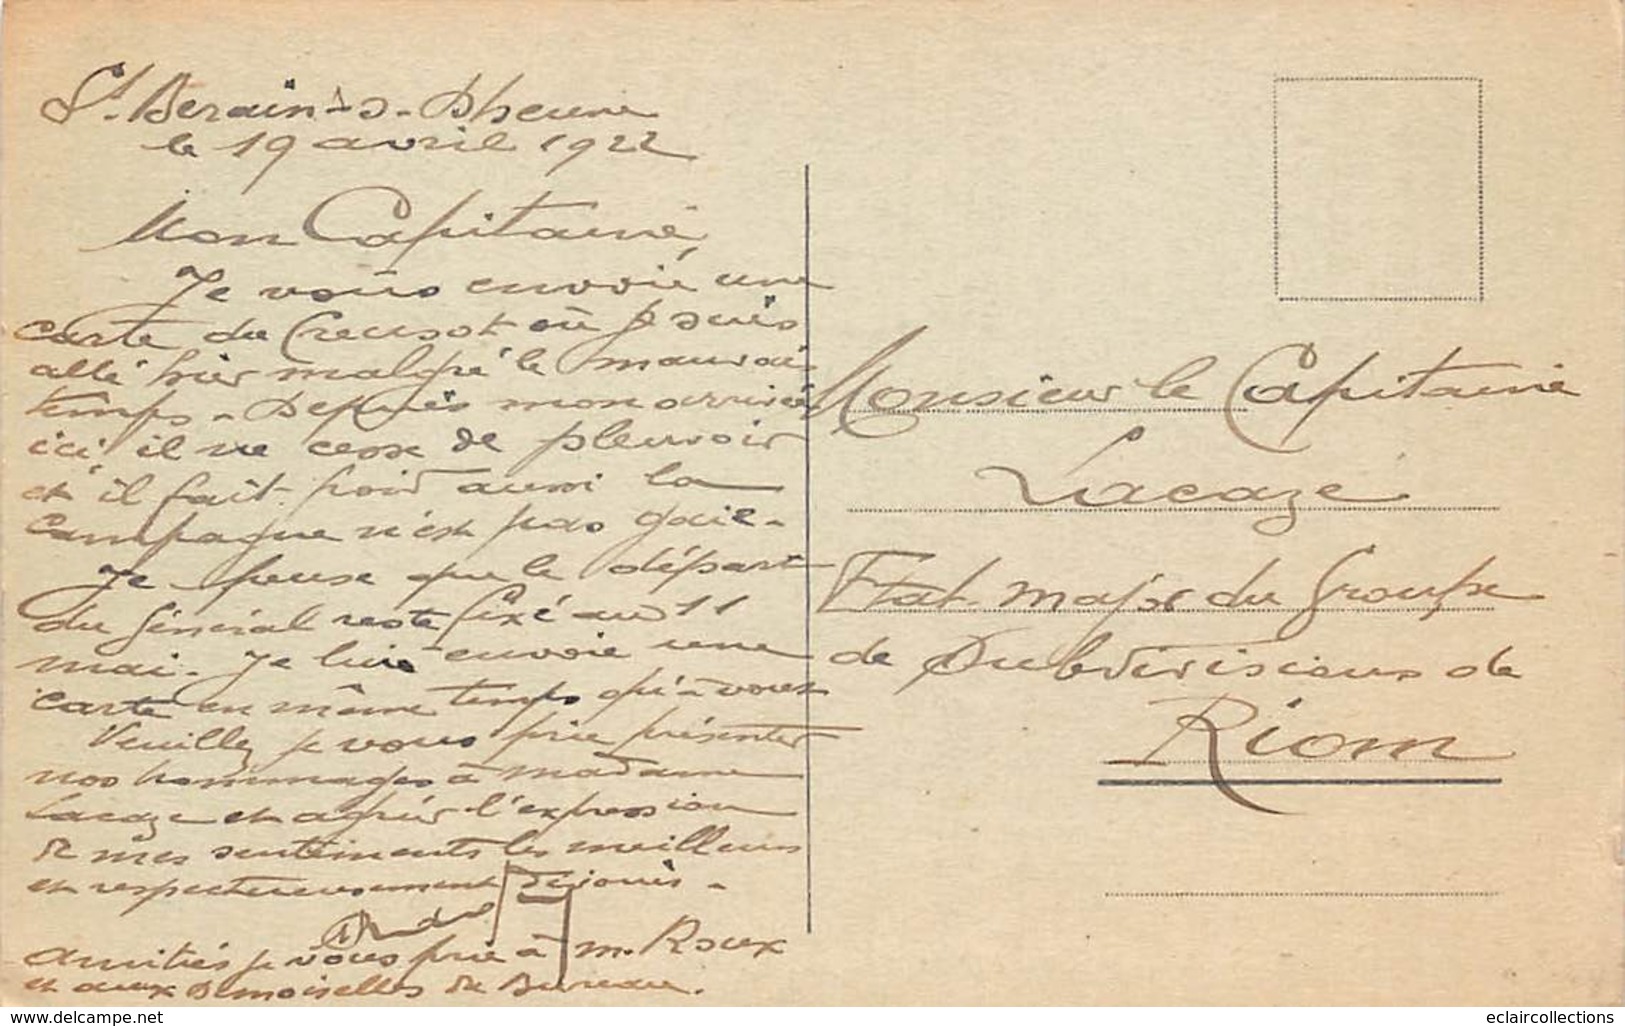 St. Berain-s-Dheune
le 19 avril 1922
Mon Capitaine,
Je vous envoie une
carte du Creusot où je suis
allé hier malgré le mauvais
temps. Depuis mon arrivée
ici il ne cesse de pleuvoir
et il fait froid aussi la
campagne n'est pas gaie.
Je pense que le départ
du Général reste fixé au 11
mai. Je lui envoie une
carte en même temps qu'à vous
Veuillez je vous prie présenter
nos hommages à madame
Lacaze et agréer l'expression
de mes sentiments les meilleurs
et respectueusement
amitiés je vous prie à M. Roux
et aux Demoiselles du Bureau.
Monsieur le Capitaine
Lacaze
Etat-major du Groupe
de Subdivisions de
Riom
www.delcampe.net
eclaircollections